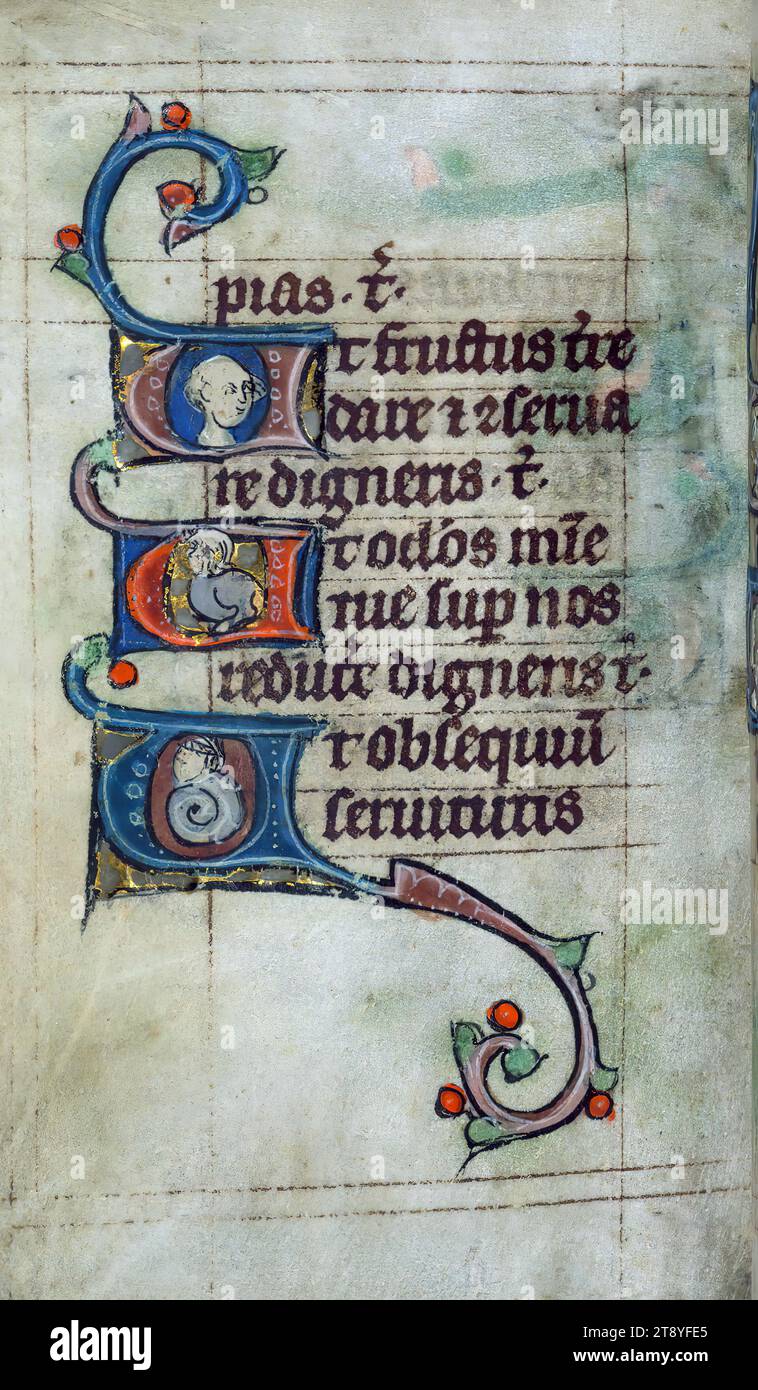 pias · t̾.
Ut fructus t̾re
dare ⁊ ꝯserua
re digneris · t̾.
Ut oclos mīe
tue suꝑ nos
reduce digneris t.
Ut obsequiū
seruitutis
alamy
alamy
alamy
Image ID: 2T8YFE5
www.alamy.com